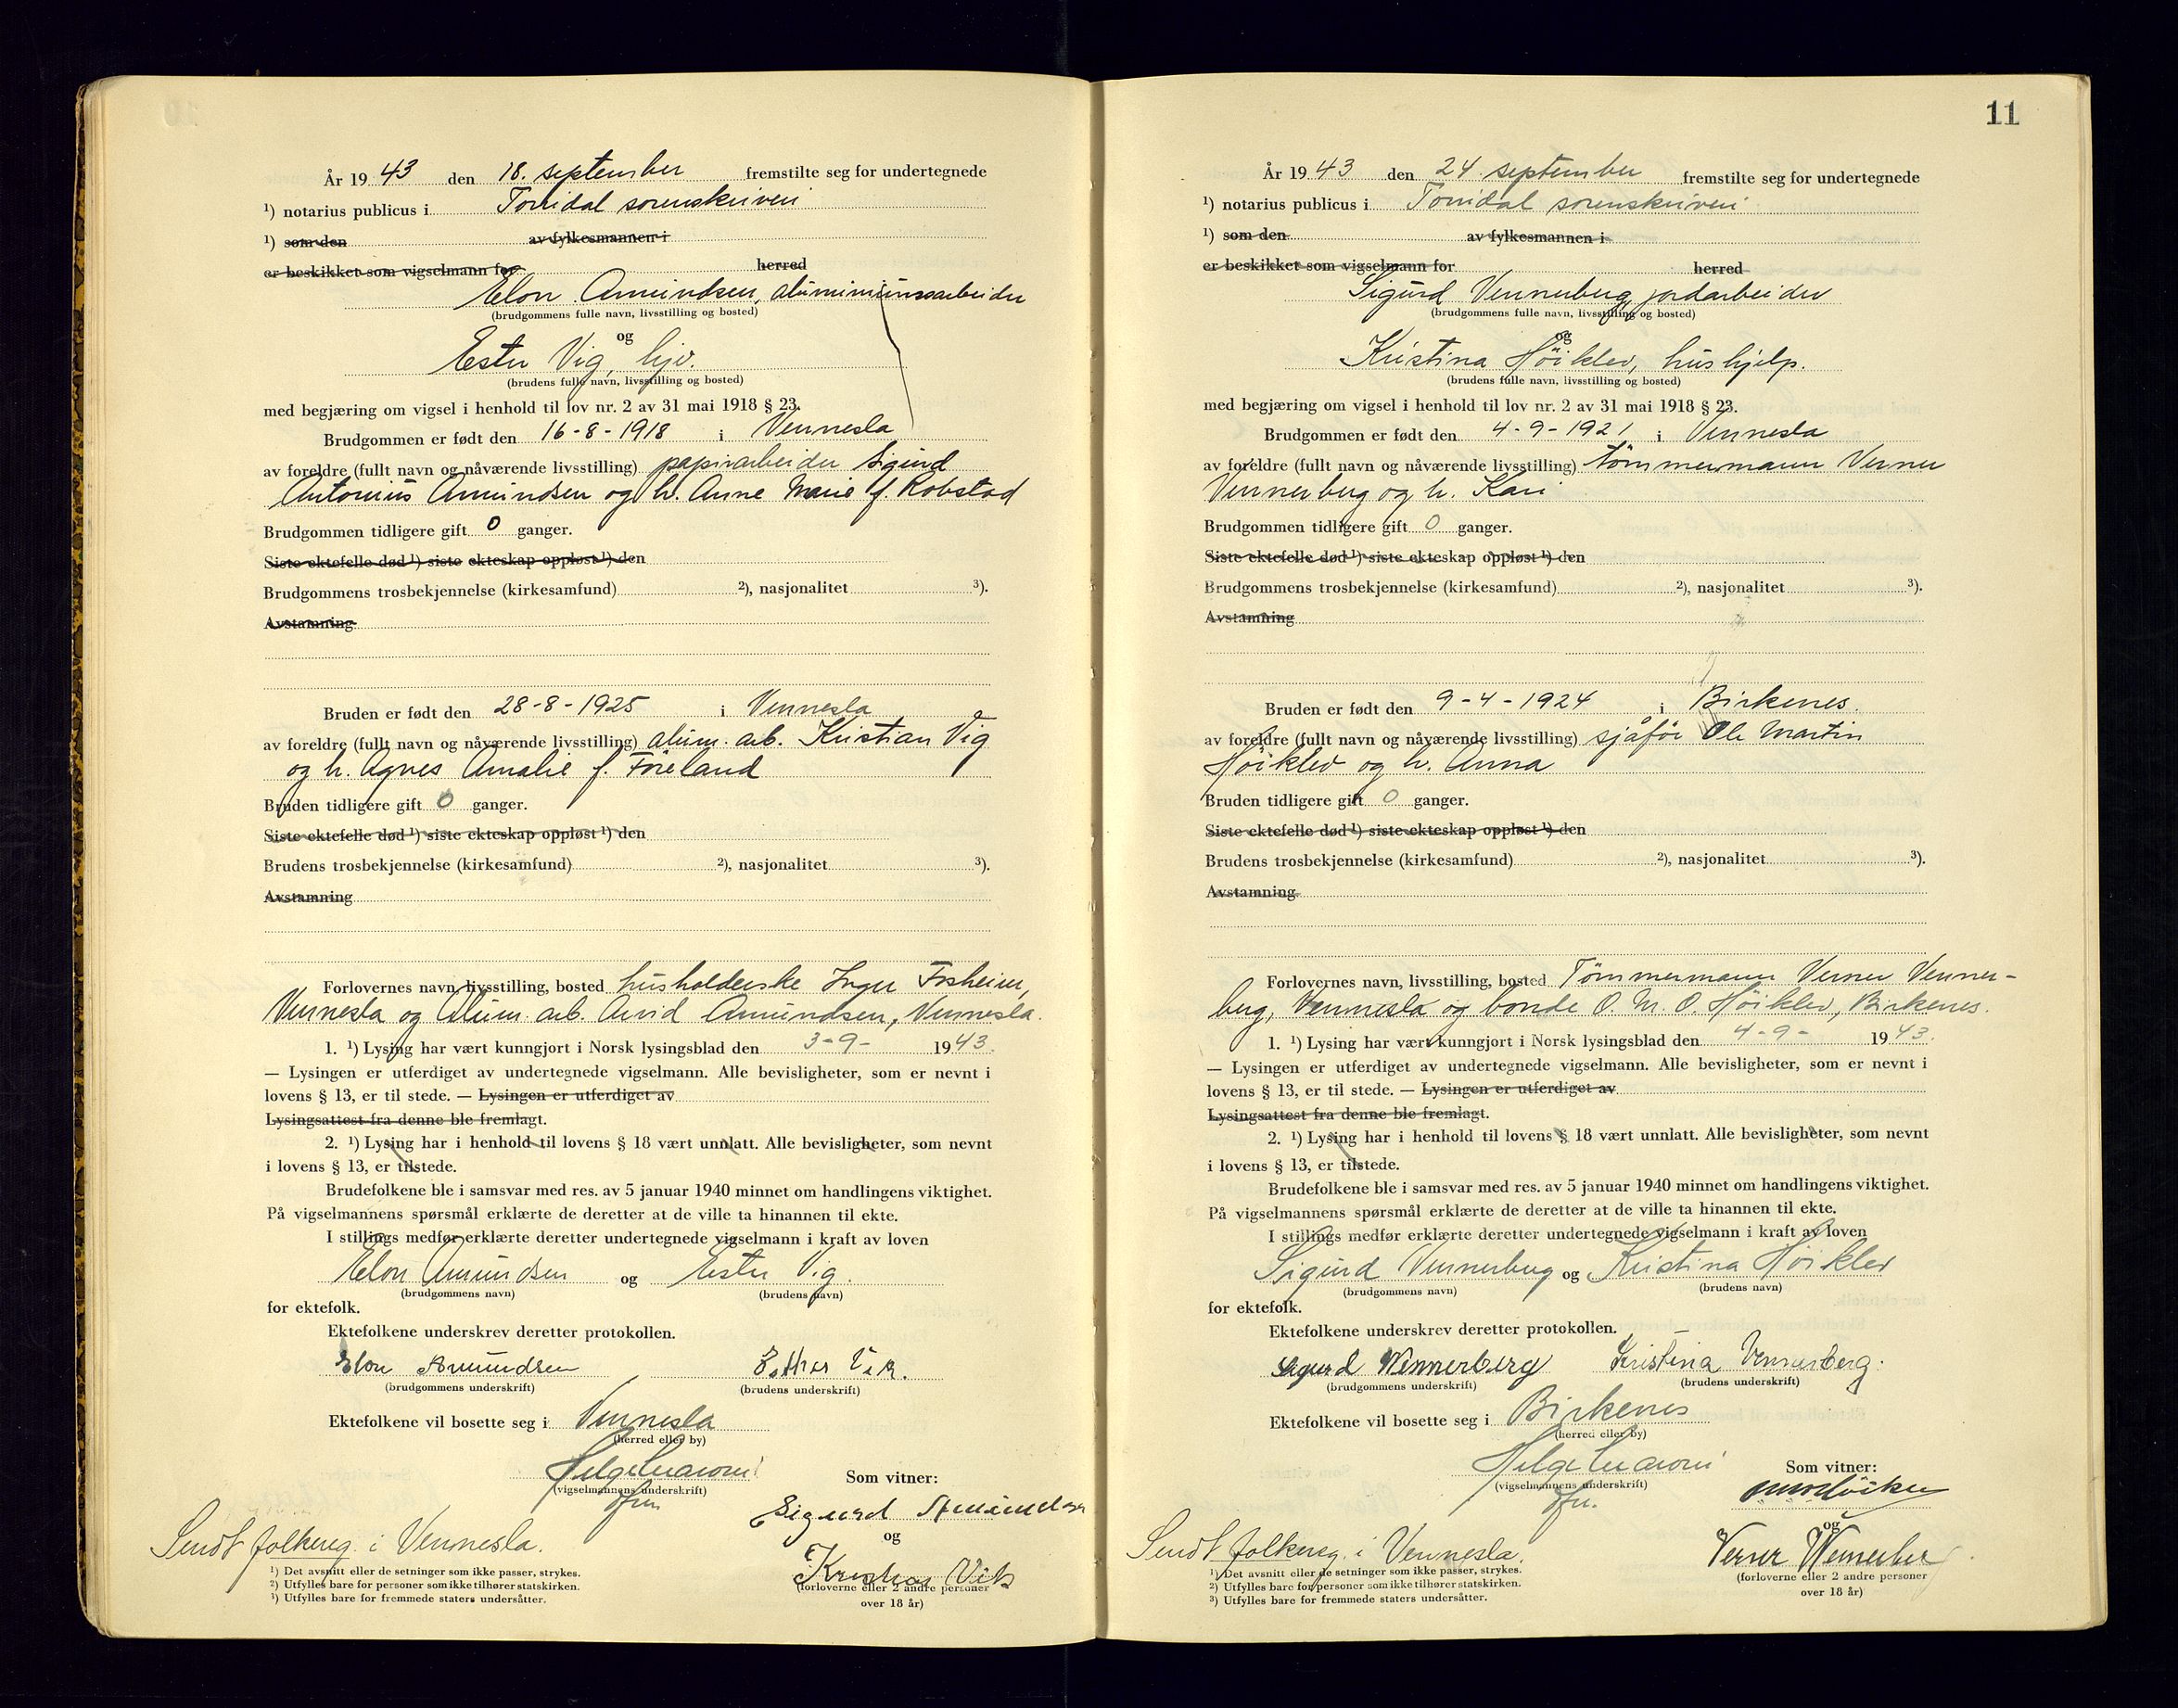 År 1943 den 18. september fremstilte seg for undertegnede
¹) notarius publicus i Torridal sorenskriveri
¹) som den av fylkesmannen i
er beskikket som vigselmann for herred
Elon Amundsen, aluminiumsarbeider
(brudgommens fulle navn, livsstilling og bosted)
og
Ester Vig, hjv.
(brudens fulle navn, livsstilling og bosted)
med begjæring om vigsel i henhold til lov nr. 2 av 31 mai 1918 § 23.
Brudgommen er født den 16-8-1918 i Vennesla
av foreldre (fullt navn og nåværende livsstilling) papirarbeider Sigurd
Antonius Amundsen og h. Anne Marie f. Robstad
Brudgommen tidligere gift 0 ganger.
Siste ektefelle død ¹) siste ekteskap oppløst ¹) den
Brudgommens trosbekjennelse (kirkesamfund) ²), nasjonalitet ³).
Avstamning
Bruden er født den 28-8-1925 i Vennesla
av foreldre (fullt navn og nåværende livsstilling) alum. arb. Kristian Vig
og h. Agnes Amalie f. Föreland
Bruden tidligere gift 0 ganger.
Siste ektefelle død ¹) siste ekteskap oppløst ¹) den
Brudens trosbekjennelse (kirkesamfund) ²), nasjonalitet ³).
Avstamning
Forlovernes navn, livsstilling, bosted husholderske Inger Fosheim,
Vennesla og Alum. arb. Arvid Amundsen, Vennesla.
1. ¹) Lysing har vært kunngjort i Norsk lysingsblad den 3-9- 1943.
— Lysingen er utferdiget av undertegnede vigselmann. Alle bevisligheter, som er nevnt i
lovens § 13, er til stede. — Lysingen er utferdiget av
Lysingsattest fra denne ble fremlagt.
2. ¹) Lysing har i henhold til lovens § 18 vært unnlatt. Alle bevisligheter, som nevnt
i lovens § 13, er tilstede.
Brudefolkene ble i samsvar med res. av 5 januar 1940 minnet om handlingens viktighet.
På vigselmannens spørsmål erklærte de deretter at de ville ta hinannen til ekte.
I stillings medfør erklærte deretter undertegnede vigselmann i kraft av loven
Elon Amundsen og Ester Vig.
(brudgommens navn) (brudens navn)
for ektefolk.
Ektefolkene underskrev deretter protokollen.
Elon Amundsen Esther Vik.
(brudgommens underskrift) (brudens underskrift)
Ektefolkene vil bosette seg i Vennesla
(herred eller by)
(vigselmannens underskrift)
Som vitner:
Sigurd Amundsen
og
Kristian Vik
(forloverne eller 2 andre personer
over 18 år)
Sendt folkereg. i Vennesla.
¹) Det avsnitt eller de setninger som ikke passer, strykes.
²) Utfylles bare for personer som ikke tilhører statskirken.
³) Utfylles bare for fremmede staters undersåtter.
11
År 1943 den 24. september fremstilte seg for undertegnede
¹) notarius publicus i Torridal sorenskriveri
¹) som den av fylkesmannen i
er beskikket som vigselmann for herred
Sigurd Vennerberg, jordarbeider
(brudgommens fulle navn, livsstilling og bosted)
og
Kristina Höiklev, hushjelp.
(brudens fulle navn, livsstilling og bosted)
med begjæring om vigsel i henhold til lov nr. 2 av 31 mai 1918 § 23.
Brudgommen er født den 4-9-1921 i Vennesla
av foreldre (fullt navn og nåværende livsstilling) tömmermann Verner
Vennerberg og h. Kari
Brudgommen tidligere gift 0 ganger.
Siste ektefelle død ¹) siste ekteskap oppløst ¹) den
Brudgommens trosbekjennelse (kirkesamfund) ²), nasjonalitet ³).
Avstamning
Bruden er født den 9-4-1924 i Birkenes.
av foreldre (fullt navn og nåværende livsstilling) sjåför Ole Martin
Höiklev og h. Anna
Bruden tidligere gift 0 ganger.
Siste ektefelle død ¹) siste ekteskap oppløst ¹) den
Brudens trosbekjennelse (kirkesamfund) ²), nasjonalitet ³).
Avstamning
Forlovernes navn, livsstilling, bosted Tömmermann Verner Venner-
berg, Vennesla og bonde O. M. O. Höiklev, Birkenes.
1. ¹) Lysing har vært kunngjort i Norsk lysingsblad den 4-9- 1943.
— Lysingen er utferdiget av undertegnede vigselmann. Alle bevisligheter, som er nevnt i
lovens § 13, er til stede. — Lysingen er utferdiget av
Lysingsattest fra denne ble fremlagt.
2. ¹) Lysing har i henhold til lovens § 18 vært unnlatt. Alle bevisligheter, som nevnt
i lovens § 13, er tilstede.
Brudefolkene ble i samsvar med res. av 5 januar 1940 minnet om handlingens viktighet.
På vigselmannens spørsmål erklærte de deretter at de ville ta hinannen til ekte.
I stillings medfør erklærte deretter undertegnede vigselmann i kraft av loven
Sigurd Vennerberg og Kristina Höiklev
(brudgommens navn) (brudens navn)
for ektefolk.
Ektefolkene underskrev deretter protokollen.
Sigurd Wennerberg Kristina Vennerberg.
(brudgommens underskrift) (brudens underskrift)
Ektefolkene vil bosette seg i Birkenes
(herred eller by)
(vigselmannens underskrift)
Som vitner:
og
Verner Wennerber
(forloverne eller 2 andre personer
over 18 år)
Sendt folkereg. i Vennesla.
¹) Det avsnitt eller de setninger som ikke passer, strykes.
²) Utfylles bare for personer som ikke tilhører statskirken.
³) Utfylles bare for fremmede staters undersåtter.